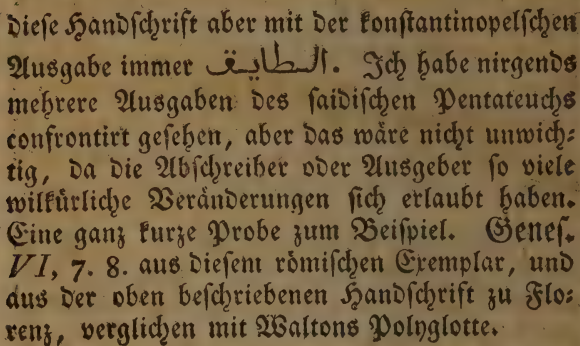 dieſe Handſchrift aber mit der konſtantinopelſchen
Ausgabe immer السطايق. Ich habe nirgends
mehrere Ausgaben des ſaidiſchen Pentateuchs
confrontirt geſehen, aber das wäre nicht unwich⸗
tig, da die Abſchreiber oder Ausgeber ſo viele
wilkürliche Veränderungen ſich erlaubt haben.
Eine ganz kurze Probe zum Beiſpiel. Geneſ.
VI, 7. 8. aus dieſem römiſchen Exemplar, und
aus der oben beſchriebenen Handſchrift zu Flo⸗
renz, verglichen mit Waltons Polyglotte.